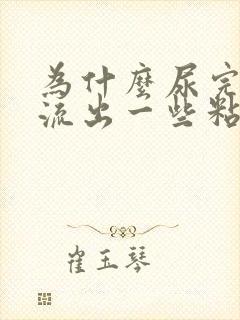 為什麼尿完
流出一些粘
崔玉琴